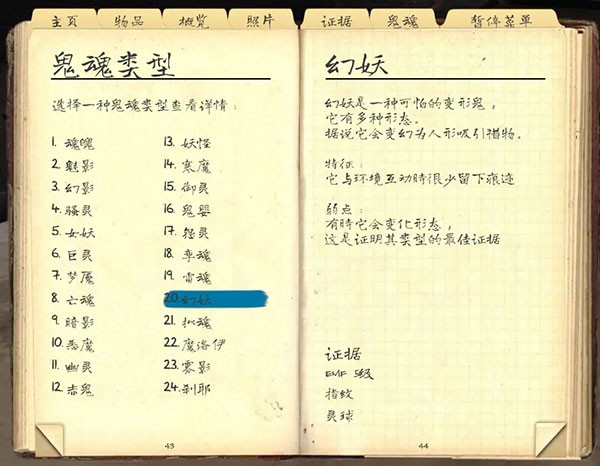 主页 物品 概览 照片 证据 鬼魂 暂停菜单
鬼魂类型
选择一种鬼魂类型查看详情:
1. 魂魄
2. 魅影
3. 幻影
4. 骚灵
5. 女妖
6. 巨灵
7. 梦魇
8. 亡魂
9. 暗影
10. 恶魔
11. 幽灵
12. 赤鬼
13. 妖怪
14. 寒魔
15. 御灵
16. 鬼婴
17. 怨灵
18. 孪魂
19. 雷魂
20. 幻妖
21. 拟魂
22. 魔洛伊
23. 雾影
24. 刹耶
43
幻妖
幻妖是一种可怕的变形鬼,
它有多种形态。
据说它会变幻为人形吸引猎物。
特征:
它与环境互动時很少留下痕迹
弱点:
有時它会变化形态,
这是证明其类型的最佳证据
证据
EMF 5级
指纹
灵球
44